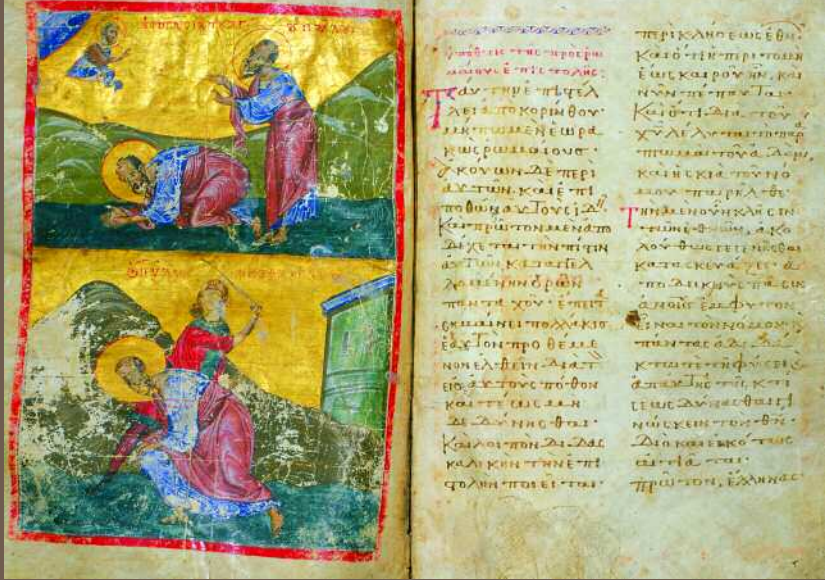 ὑπόθεσις τῆς πρὸς ῥω
μαίους ἐπιστολῆς:
Ταύτην ἐπιστέλ
λει ἀπὸ κορίνθου
μήπω μὲν ἑωρα
κὼς ῥωμαίους·
ἀκούων δὲ περὶ
αὐτῶν· καὶ ἐπι
ποθῶν αὐτοὺς ἰδ
Καὶ πρῶτον μὲν ἀπο
δέχεται τὴν πίστιν
αὐτῶν καταγγελ
λομένην ὁρῶν
πανταχοῦ· ἔπειτ
σημαίνει πολλάκις
ἑαυτὸν προθέμε
νον ἐλθεῖν διὰ τ
εἰς αὐτοὺς πόθον
καὶ τέως μὴ
δεδυνῆσθαι·
Καὶ λοιπὸν διδασ
καλικὴν τὴν ἐπι
στολὴν ποιεῖται·
περὶ κλήσεως ἐθν
Καὶ ὅτι ἡ περιτομὴ
ἕως καιροῦ ἦν, καὶ
νῦν πέπαυται·
Καὶ ὅτι διὰ τοῦ
χυ λέλυται τὸ παρ
πτωμα τοῦ ἀδαμ,
καὶ ἡ σκιὰ τοῦ νό
μου παρελθε·
Τὴν μὲν οὖν κλῆσιν
τῶν ἐθνῶν, ἀκο
λούθως γεγενῆσθαι
κατασκευάζει· ἀ
ποδεικνὺς πᾶσιν
ἀνοις ἔμφυτον
εἶναι τὸν νόμον· κ
πάντας ἀδιδά
κτως τῆς φύσε
ἀπ αὐτῆς τῆς κτί
σεως δύνασθαι γι
νώσκειν τὸν θν·
Διὸ καὶ εἰκότως
αἰτιᾶται
πρῶτον, ἕλληνας